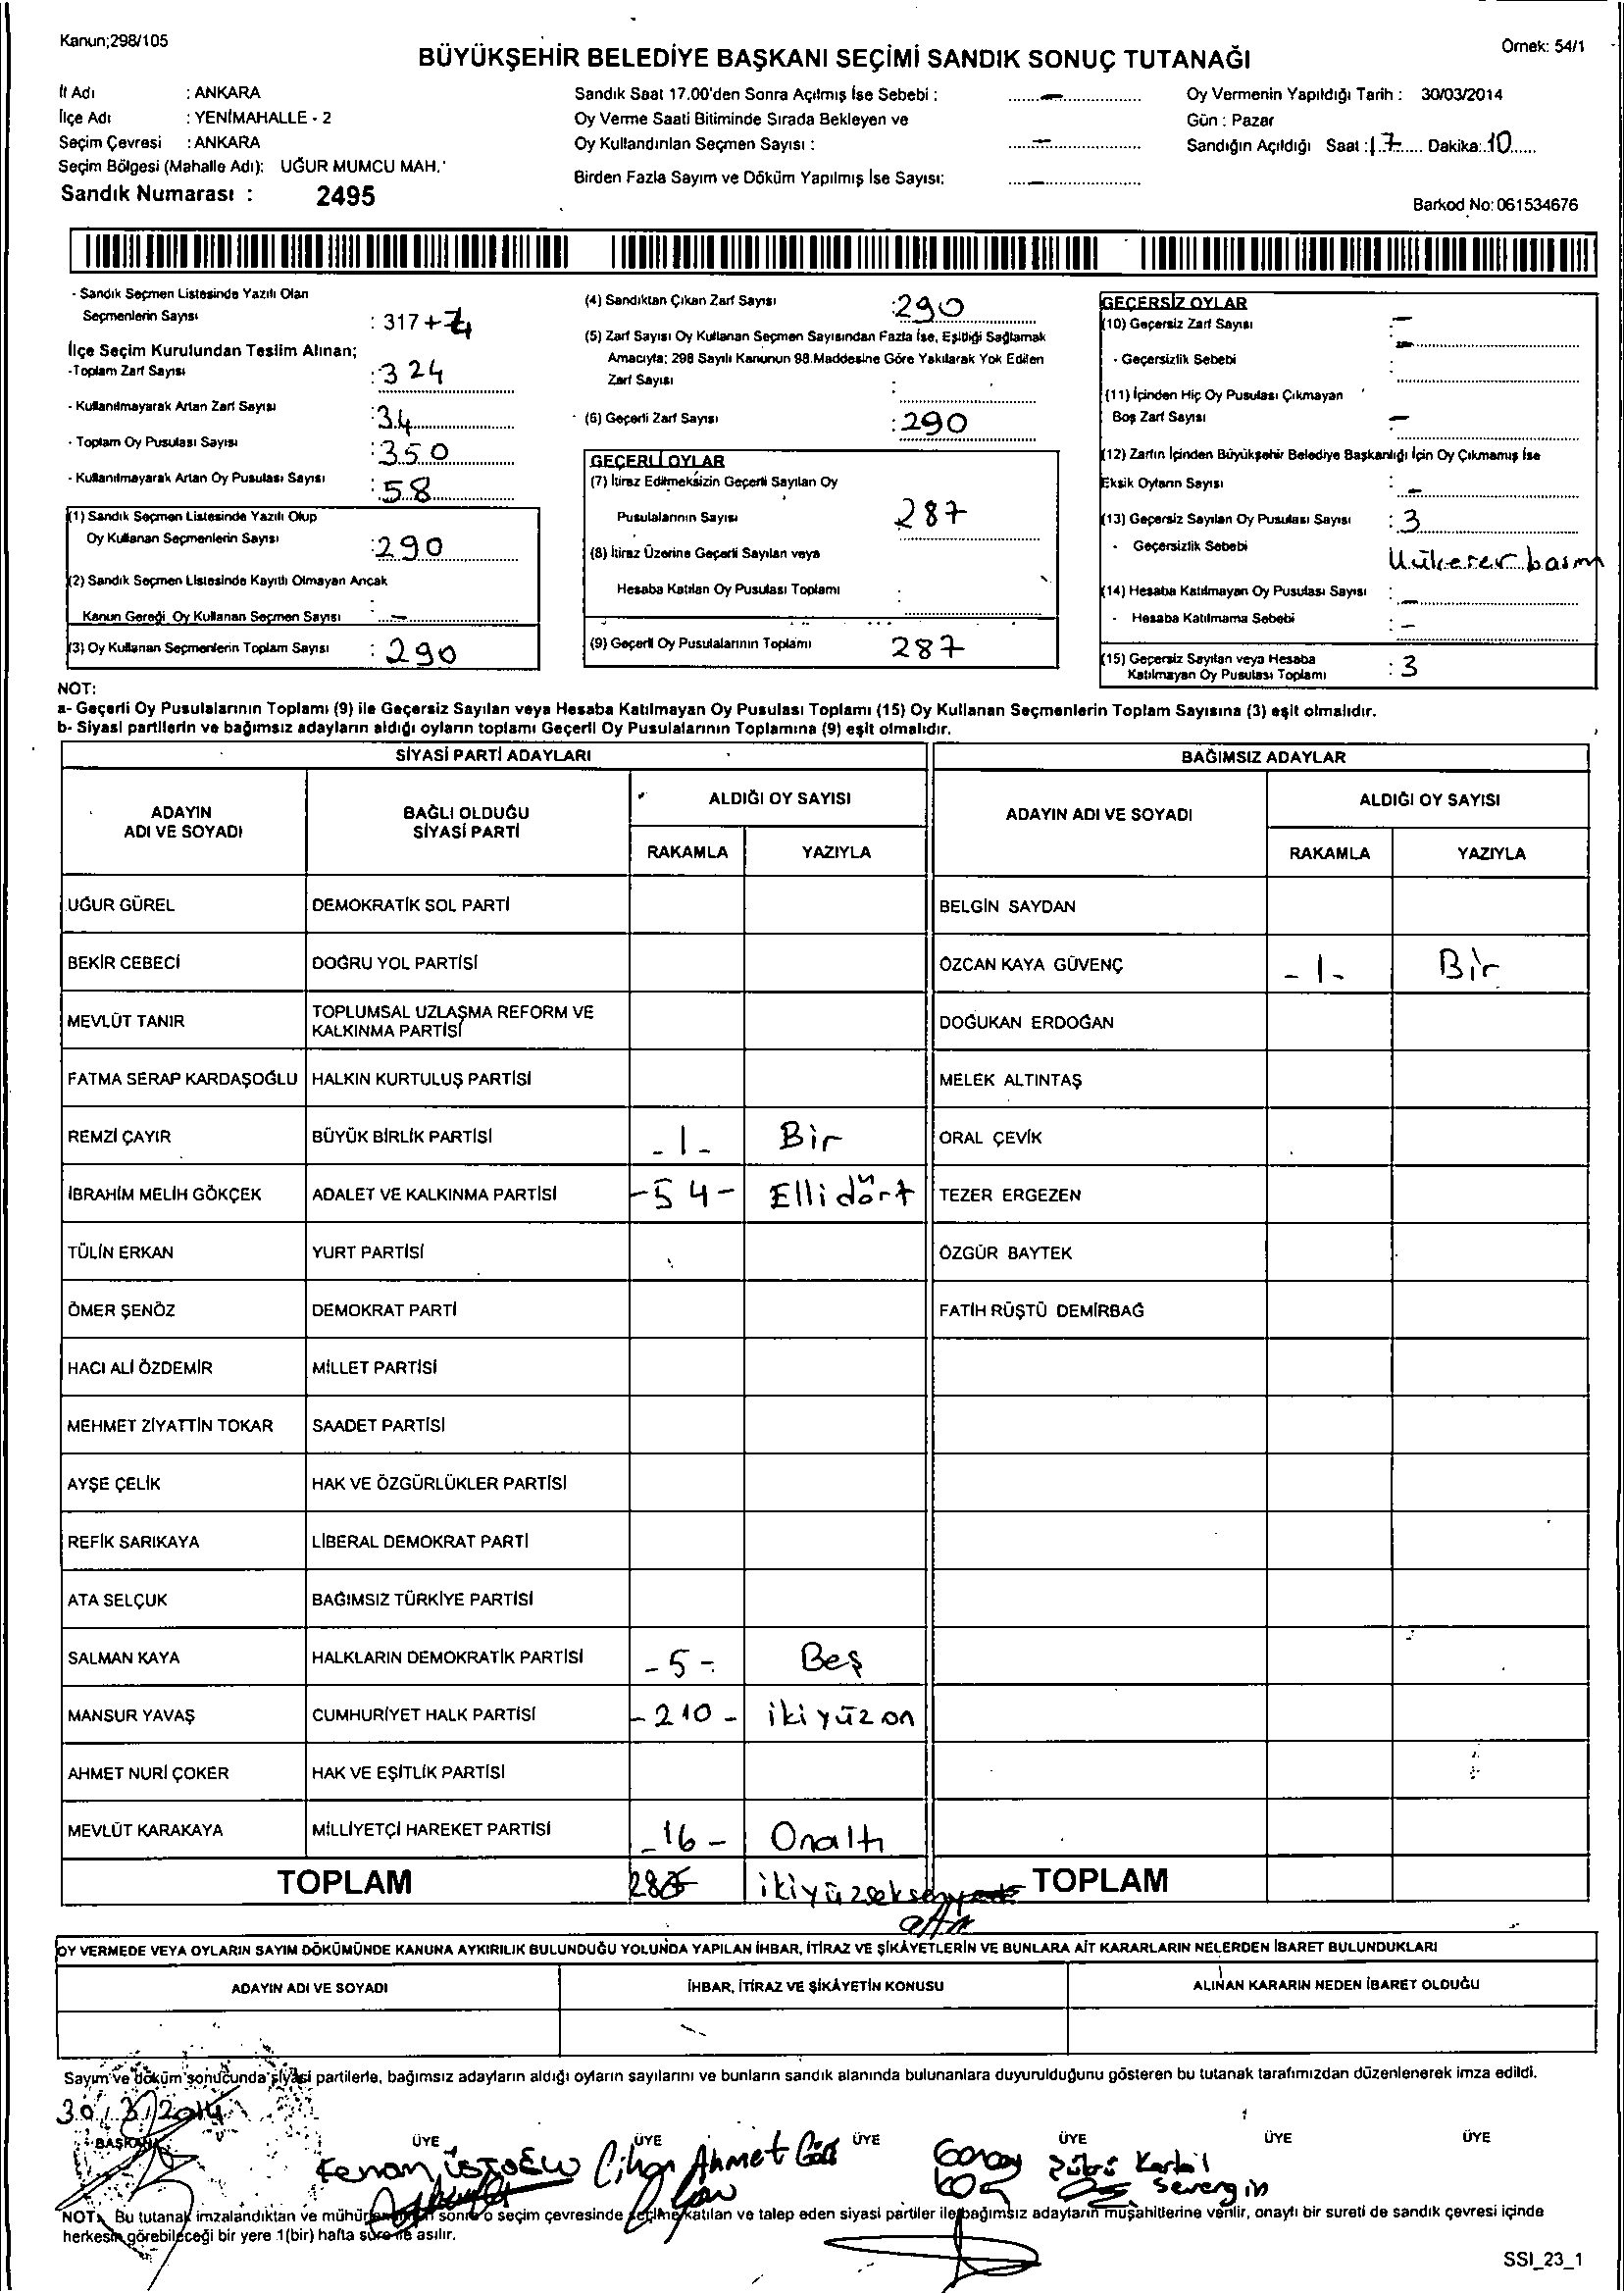 Kanun;298/105
Örnek: 54/1
BÜYÜKŞEHİR BELEDİYE BAŞKANI SEÇİMİ SANDIK SONUÇ TUTANAĞI
İl Adı : ANKARA
İlçe Adı : YENİMAHALLE - 2
Seçim Çevresi : ANKARA
Seçim Bölgesi (Mahalle Adı): UĞUR MUMCU MAH.
Sandık Numarası : 2495
Sandık Saat 17.00'den Sonra Açılmış İse Sebebi : -
Oy Verme Saati Bitiminde Sırada Bekleyen ve
Oy Kullandırılan Seçmen Sayısı : -
Birden Fazla Sayım ve Döküm Yapılmış İse Sayısı: -
Oy Vermenin Yapıldığı Tarih : 30/03/2014
Gün : Pazar
Sandığın Açıldığı Saat : 17 Dakika: 10
Barkod No: 061534676
- Sandık Seçmen Listesinde Yazılı Olan
Seçmenlerin Sayısı : 317+7
İlçe Seçim Kurulundan Teslim Alınan;
-Toplam Zarf Sayısı : 324
- Kullanılmayarak Artan Zarf Sayısı : 34
- Toplam Oy Pusulası Sayısı : 350
- Kullanılmayarak Artan Oy Pusulası Sayısı : 58
(1) Sandık Seçmen Listesinde Yazılı Olup
Oy Kullanan Seçmenlerin Sayısı : 290
(2) Sandık Seçmen Listesinde Kayıtlı Olmayan Ancak
Kanun Gereği Oy Kullanan Seçmen Sayısı : -
(3) Oy Kullanan Seçmenlerin Toplam Sayısı : 290
(4) Sandıktan Çıkan Zarf Sayısı : 290
(5) Zarf Sayısı Oy Kullanan Seçmen Sayısından Fazla İse, Eşitliği Sağlamak
Amacıyla; 298 Sayılı Kanunun 98.Maddesine Göre Yakılarak Yok Edilen
Zarf Sayısı :
(6) Geçerli Zarf Sayısı : 290
GEÇERLİ OYLAR
(7) İtiraz Edilmeksizin Geçerli Sayılan Oy
Pusulalarının Sayısı 287
(8) İtiraz Üzerine Geçerli Sayılan veya
Hesaba Katılan Oy Pusulası Toplamı :
(9) Geçerli Oy Pusulalarının Toplamı 287
GEÇERSİZ OYLAR
(10) Geçersiz Zarf Sayısı : -
- Geçersizlik Sebebi :
(11) İçinden Hiç Oy Pusulası Çıkmayan
Boş Zarf Sayısı -
(12) Zarfın İçinden Büyükşehir Belediye Başkanlığı İçin Oy Çıkmamış İse
Eksik Oyların Sayısı : -
(13) Geçersiz Sayılan Oy Pusulası Sayısı : 3
- Geçersizlik Sebebi
(14) Hesaba Katılmayan Oy Pusulası Sayısı : -
- Hesaba Katılmama Sebebi : -
(15) Geçersiz Sayılan veya Hesaba
Katılmayan Oy Pusulası Toplamı : 3
NOT:
a- Geçerli Oy Pusulalarının Toplamı (9) ile Geçersiz Sayılan veya Hesaba Katılmayan Oy Pusulası Toplamı (15) Oy Kullanan Seçmenlerin Toplam Sayısına (3) eşit olmalıdır.
b- Siyasi partilerin ve bağımsız adayların aldığı oyların toplamı Geçerli Oy Pusulalarının Toplamına (9) eşit olmalıdır.
SİYASİ PARTİ ADAYLARI BAĞIMSIZ ADAYLAR
ADAYIN ADI VE SOYADI BAĞLI OLDUĞU SİYASİ PARTİ ALDIĞI OY SAYISI ADAYIN ADI VE SOYADI ALDIĞI OY SAYISI
RAKAMLA YAZIYLA RAKAMLA YAZIYLA
UĞUR GÜREL DEMOKRATİK SOL PARTİ BELGİN SAYDAN
BEKİR CEBECİ DOĞRU YOL PARTİSİ ÖZCAN KAYA GÜVENÇ -1- Bir
MEVLÜT TANIR TOPLUMSAL UZLAŞMA REFORM VE KALKINMA PARTİSİ DOĞUKAN ERDOĞAN
FATMA SERAP KARDAŞOĞLU HALKIN KURTULUŞ PARTİSİ MELEK ALTINTAŞ
REMZİ ÇAYIR BÜYÜK BİRLİK PARTİSİ -1- Bir ORAL ÇEVİK
İBRAHİM MELİH GÖKÇEK ADALET VE KALKINMA PARTİSİ -54- Elli dört TEZER ERGEZEN
TÜLİN ERKAN YURT PARTİSİ ÖZGÜR BAYTEK
ÖMER ŞENÖZ DEMOKRAT PARTİ FATİH RÜŞTÜ DEMİRBAĞ
HACI ALİ ÖZDEMİR MİLLET PARTİSİ
MEHMET ZİYATTİN TOKAR SAADET PARTİSİ
AYŞE ÇELİK HAK VE ÖZGÜRLÜKLER PARTİSİ
REFİK SARIKAYA LİBERAL DEMOKRAT PARTİ
ATA SELÇUK BAĞIMSIZ TÜRKİYE PARTİSİ
SALMAN KAYA HALKLARIN DEMOKRATİK PARTİSİ -5- Beş
MANSUR YAVAŞ CUMHURİYET HALK PARTİSİ -210- iki yüz on
AHMET NURİ ÇOKER HAK VE EŞİTLİK PARTİSİ
MEVLÜT KARAKAYA MİLLİYETÇİ HAREKET PARTİSİ -16- Onaltı
TOPLAM ikiyüzseksen altı TOPLAM
OY VERMEDE VEYA OYLARIN SAYIM DÖKÜMÜNDE KANUNA AYKIRILIK BULUNDUĞU YOLUNDA YAPILAN İHBAR, İTİRAZ VE ŞİKAYETLERİN VE BUNLARA AİT KARARLARIN NELERDEN İBARET BULUNDUKLARI
ADAYIN ADI VE SOYADI İHBAR, İTİRAZ VE ŞİKAYETİN KONUSU ALINAN KARARIN NEDEN İBARET OLDUĞU
Sayım ve döküm sonucunda siyasi partilerle, bağımsız adayların aldığı oyların sayılarını ve bunların sandık alanında bulunanlara duyurulduğunu gösteren bu tutanak tarafımızdan düzenlenerek imza edildi.
30/3/2014
BAŞKAN ÜYE ÜYE ÜYE ÜYE ÜYE ÜYE
Kenan Cihan Ahmet Koç
NOT: Bu tutanak imzalandıktan ve mühürlendikten sonra o seçim çevresinde seçime katılan ve talep eden siyasi partiler ile bağımsız adayların müşahitlerine verilir, onaylı bir sureti de sandık çevresi içinde
herkesin görebileceği bir yere 1(bir) hafta süre ile asılır.
SSI_23_1